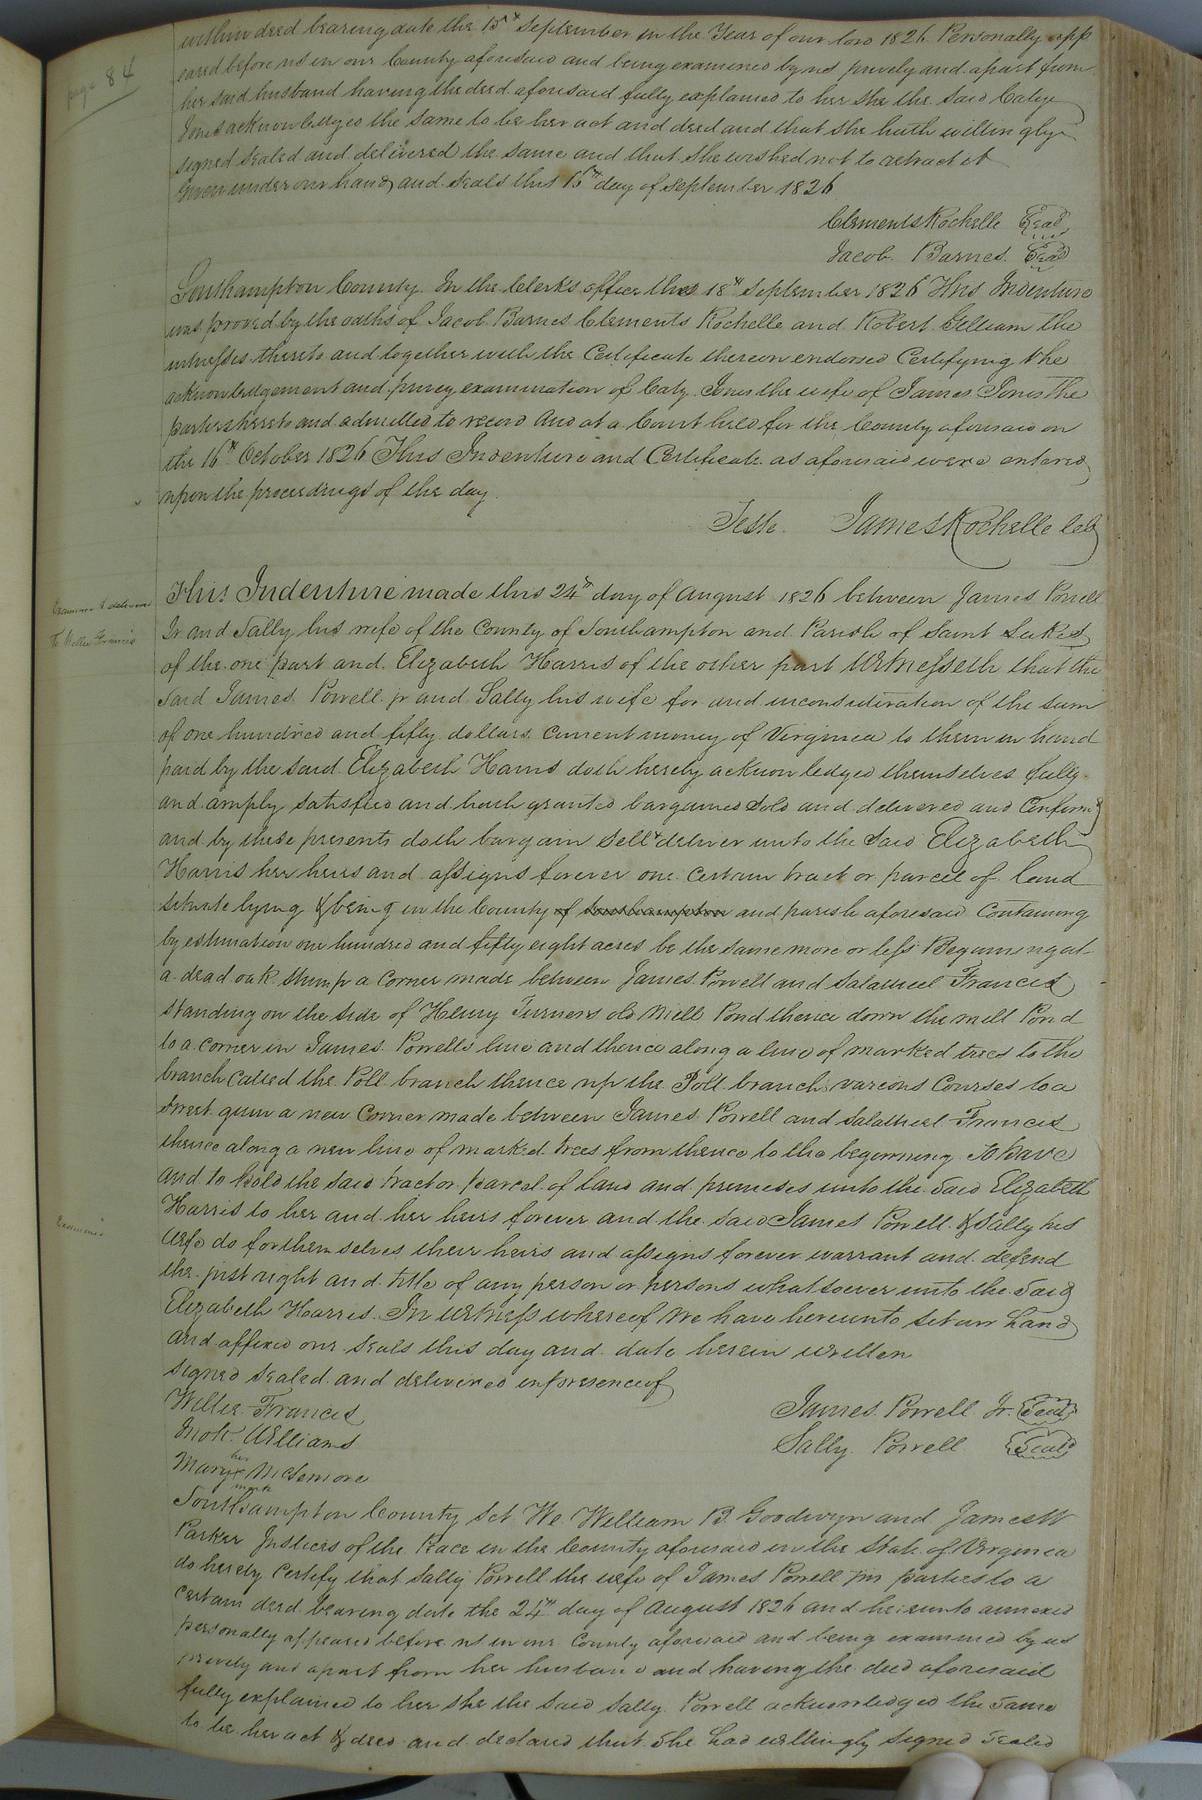 page 84
within deed bearing date the 15th September in the Year of our lord 1826 Personally app
eared before us in our County aforesaid and being examined by us prively and apart from
her said husband having the deed aforesaid fully explained to her she the said Caty
Jones acknowledged the same to be her act and deed and that she hath willingly
signed sealed and delivered the same and that she wished not to retract it
Given under our hand and seals this 15th day of September 1826
Clements Rochelle Seal
Jacob Barnes. Seal
Southampton County. In the Clerks office the 18th September 1826 This Indenture
was proved by the oaths of Jacob Barnes Clements Rochelle and Robert Gilliam the
witnesses thereto and together with the Certificate thereon endorsed Certifying the
acknowledgement and privey examination of Caty Jones the wife of James Jones the
parties thereto and admitted to record And at a Court held for the County aforesaid on
the 16th October 1826 This Indenture and Certificate as aforesaid were entered
upon the proceedings of the day.
Teste. James Rochelle
This Indenture made this 24th day of August 1826 between James Powell
Jr and Sally his wife of the County of Southampton and Parish of Saint Lukes
of the one part and Elizabeth Harris of the other part Witnesseth that the
Said James Powell jr and Sally his wife for and inconsideration of the sum
of one hundred and fifty dollars current money of Virginia to them in hand
paid by the said Elizabeth Harris doth hereby acknowledged themselves fully
and amply satisfied and hath granted bargained sold and delivered and Confirmd
and by these presents doth bargain sell & deliver unto the Said Elizabeth
Harris her heirs and assigns forever one certain tract or parcel of land
situate lying & being in the County of Southampton and parish aforesaid Containing
by estimation one hundred and fifty eight acres be the same more or less Beginning at
a dead oak stump a corner made between James Powell and Salathiel Francis
standing on the side of Henry Turners old Mill Pond thence down the mill Pond
to a corner in James Powells line and thence along a line of marked trees to the
branch called the Poll branch thence up the Poll branch various Courses to a
sweet gum a new Corner made between James Powell and Salathiel Francis
thence along a new line of marked trees from thence to the beginning To have
and to hold the said tract or parcel of land and premises unto the Said Elizabeth
Harris to her and her heirs forever and the said James Powell & Sally his
wife do for themselves their heirs and assigns forever warrant and defend
the just right and title of any person or persons whatsoever unto the Said
Elizabeth Harris. In Witness whereof we have hereunto set our hand
and affixed our seals this day and date herein written
signed sealed and delivered in presence of
Willie Francis
Williams
her
Mary x McLemore
mark
James Powell Jr. Seal
Sally Powell Seal
Southampton County Sct We William B. Goodwyn and James W
Parker Justices of the Peace in the County aforesaid in the State of Virginia
do hereby certify that Sally Powell the wife of James Powell jr parties to a
certain deed bearing date the 24th day of August 1826 and hereunto annexed
personally appeared before us in our County aforesaid and being examined by us
prively and apart from her husband and having the deed aforesaid
fully explained to her she the said Sally Powell acknowledged the same
to be her act & deed and declared that she had willingly signed sealed